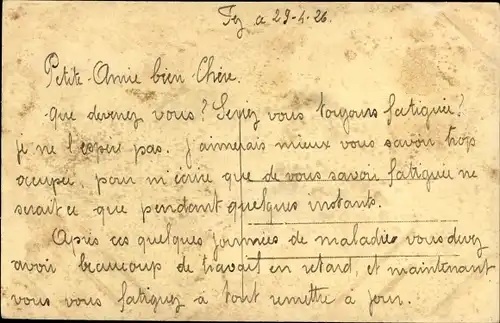 Fez a 29-4-26.
Petite Amie bien Chère.
Que devenez vous? Seriez vous toujours fatiguée?
je ne l'espère pas. J'aimerais mieux vous savoir trop
occupée, pour m'écrire que de vous savoir fatiguée ne
serait ce que pendant quelques instants.
Après ces quelques journées de maladies vous devez
avoir beaucoup de travail en retard, et maintenant
vous vous fatiguez à tout remettre à jour.